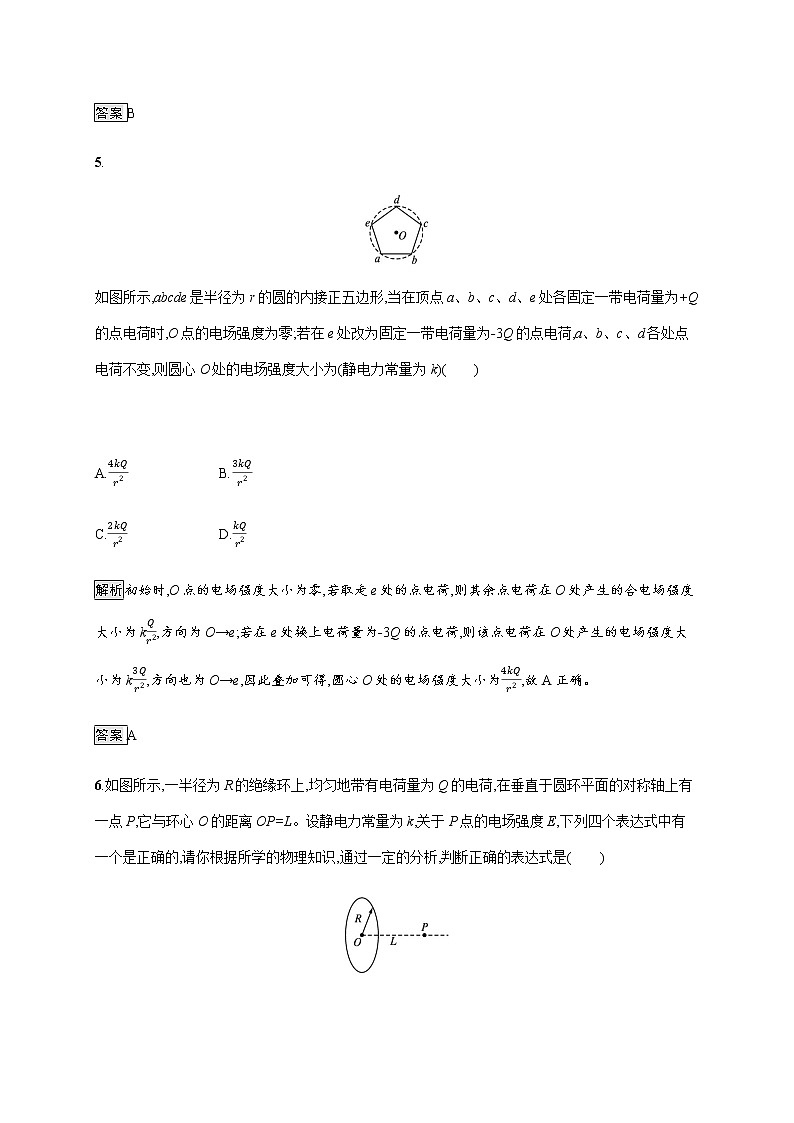 答案 B
5.
d
e
c
O
a
b
如图所示,abcde是半径为r的圆的内接正五边形,当在顶点a、b、c、d、e处各固定一带电荷量为+Q
的点电荷时,O点的电场强度为零;若在e处改为固定一带电荷量为-3Q的点电荷,a、b、c、d各处点
电荷不变,则圆心O处的电场强度大小为(静电力常量为k)(　　)
A.\frac{4kQ}{r^2}　　B.\frac{3kQ}{r^2}
C.\frac{2kQ}{r^2}　　D.\frac{kQ}{r^2}
解析 初始时,O点的电场强度大小为零,若取走e处的点电荷,则其余点电荷在O处产生的合电场强度
大小为k\frac{Q}{r^2},方向为O→e;若在e处换上电荷量为-3Q的点电荷,则该点电荷在O处产生的电场强度大
小为k\frac{3Q}{r^2},方向也为O→e,因此叠加可得,圆心O处的电场强度大小为\frac{4kQ}{r^2},故A正确。
答案 A
6.如图所示,一半径为R的绝缘环上,均匀地带有电荷量为Q的电荷,在垂直于圆环平面的对称轴上有
一点P,它与环心O的距离OP=L。设静电力常量为k,关于P点的电场强度E,下列四个表达式中有
一个是正确的,请你根据所学的物理知识,通过一定的分析,判断正确的表达式是(　　)
R
P
O
L